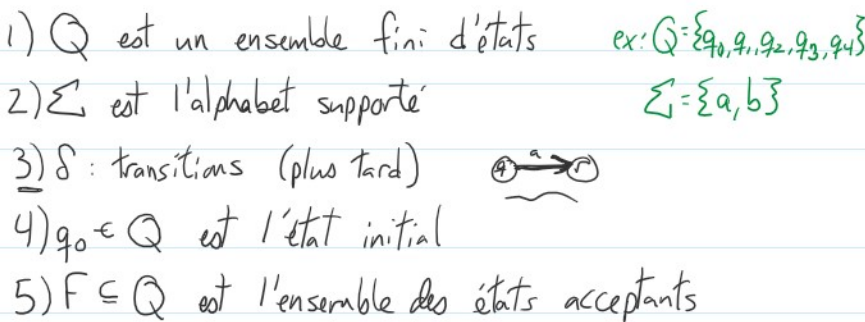 1) Q est un ensemble fini d'états ex: Q={q0,q1,q2,q3,q4}
2) Σ est l'alphabet supporté Σ={a,b}
3) δ : transitions (plus tard) q a r
4) q0 ∈ Q est l'état initial
5) F ⊆ Q est l'ensemble des états acceptants